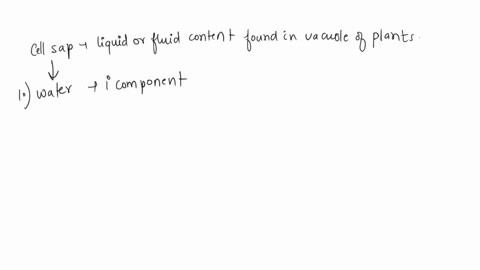 Cell sap → liquid or fluid content found in vacuole of plants.
↓
1.) water → i component